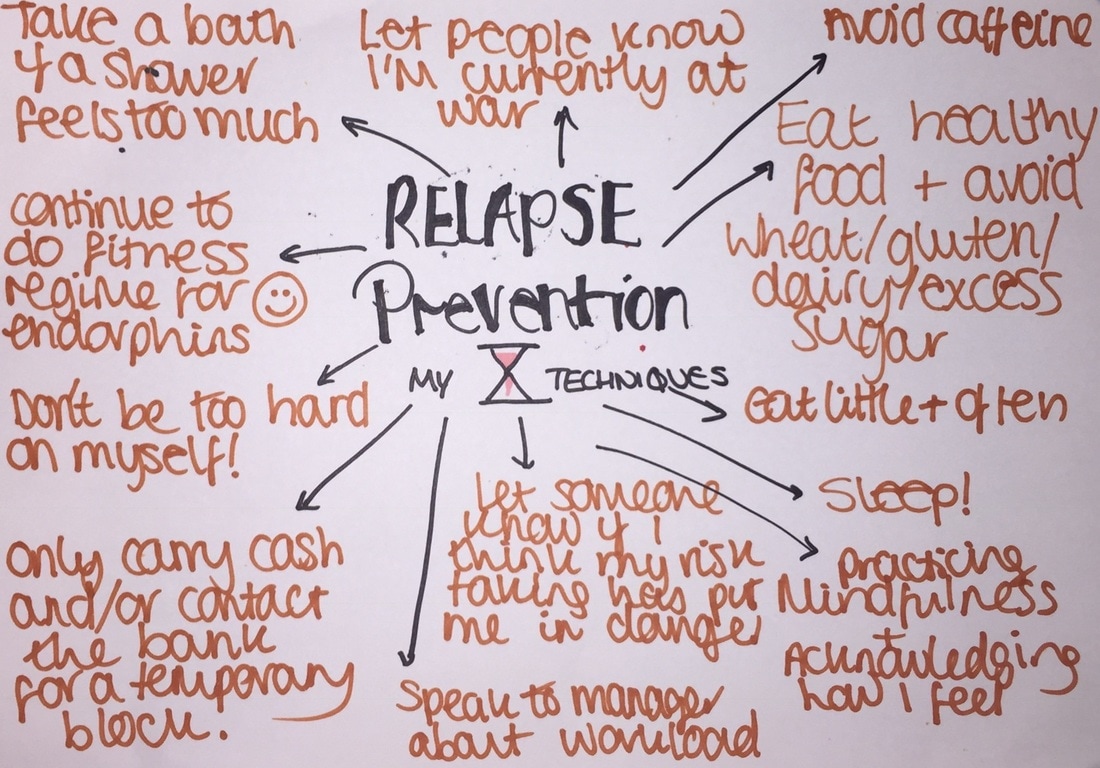 RELAPSE
Prevention
MY TECHNIQUES
Take a bath
if a shower
feels too much
Let people know
I'M currently at
war
Avoid caffeine
Eat healthy
food + avoid
wheat/gluten/
dairy/excess
sugar
Eat little + often
Sleep!
practicing
Mindfulness
+
Acknowledging
how I feel
Let someone
know if I
think my risk
taking has put
me in danger
Speak to manager
about workload
only carry cash
and/or contact
the bank
for a temporary
block.
Don't be too hard
on myself!
continue to
do fitness
regime for
endorphins